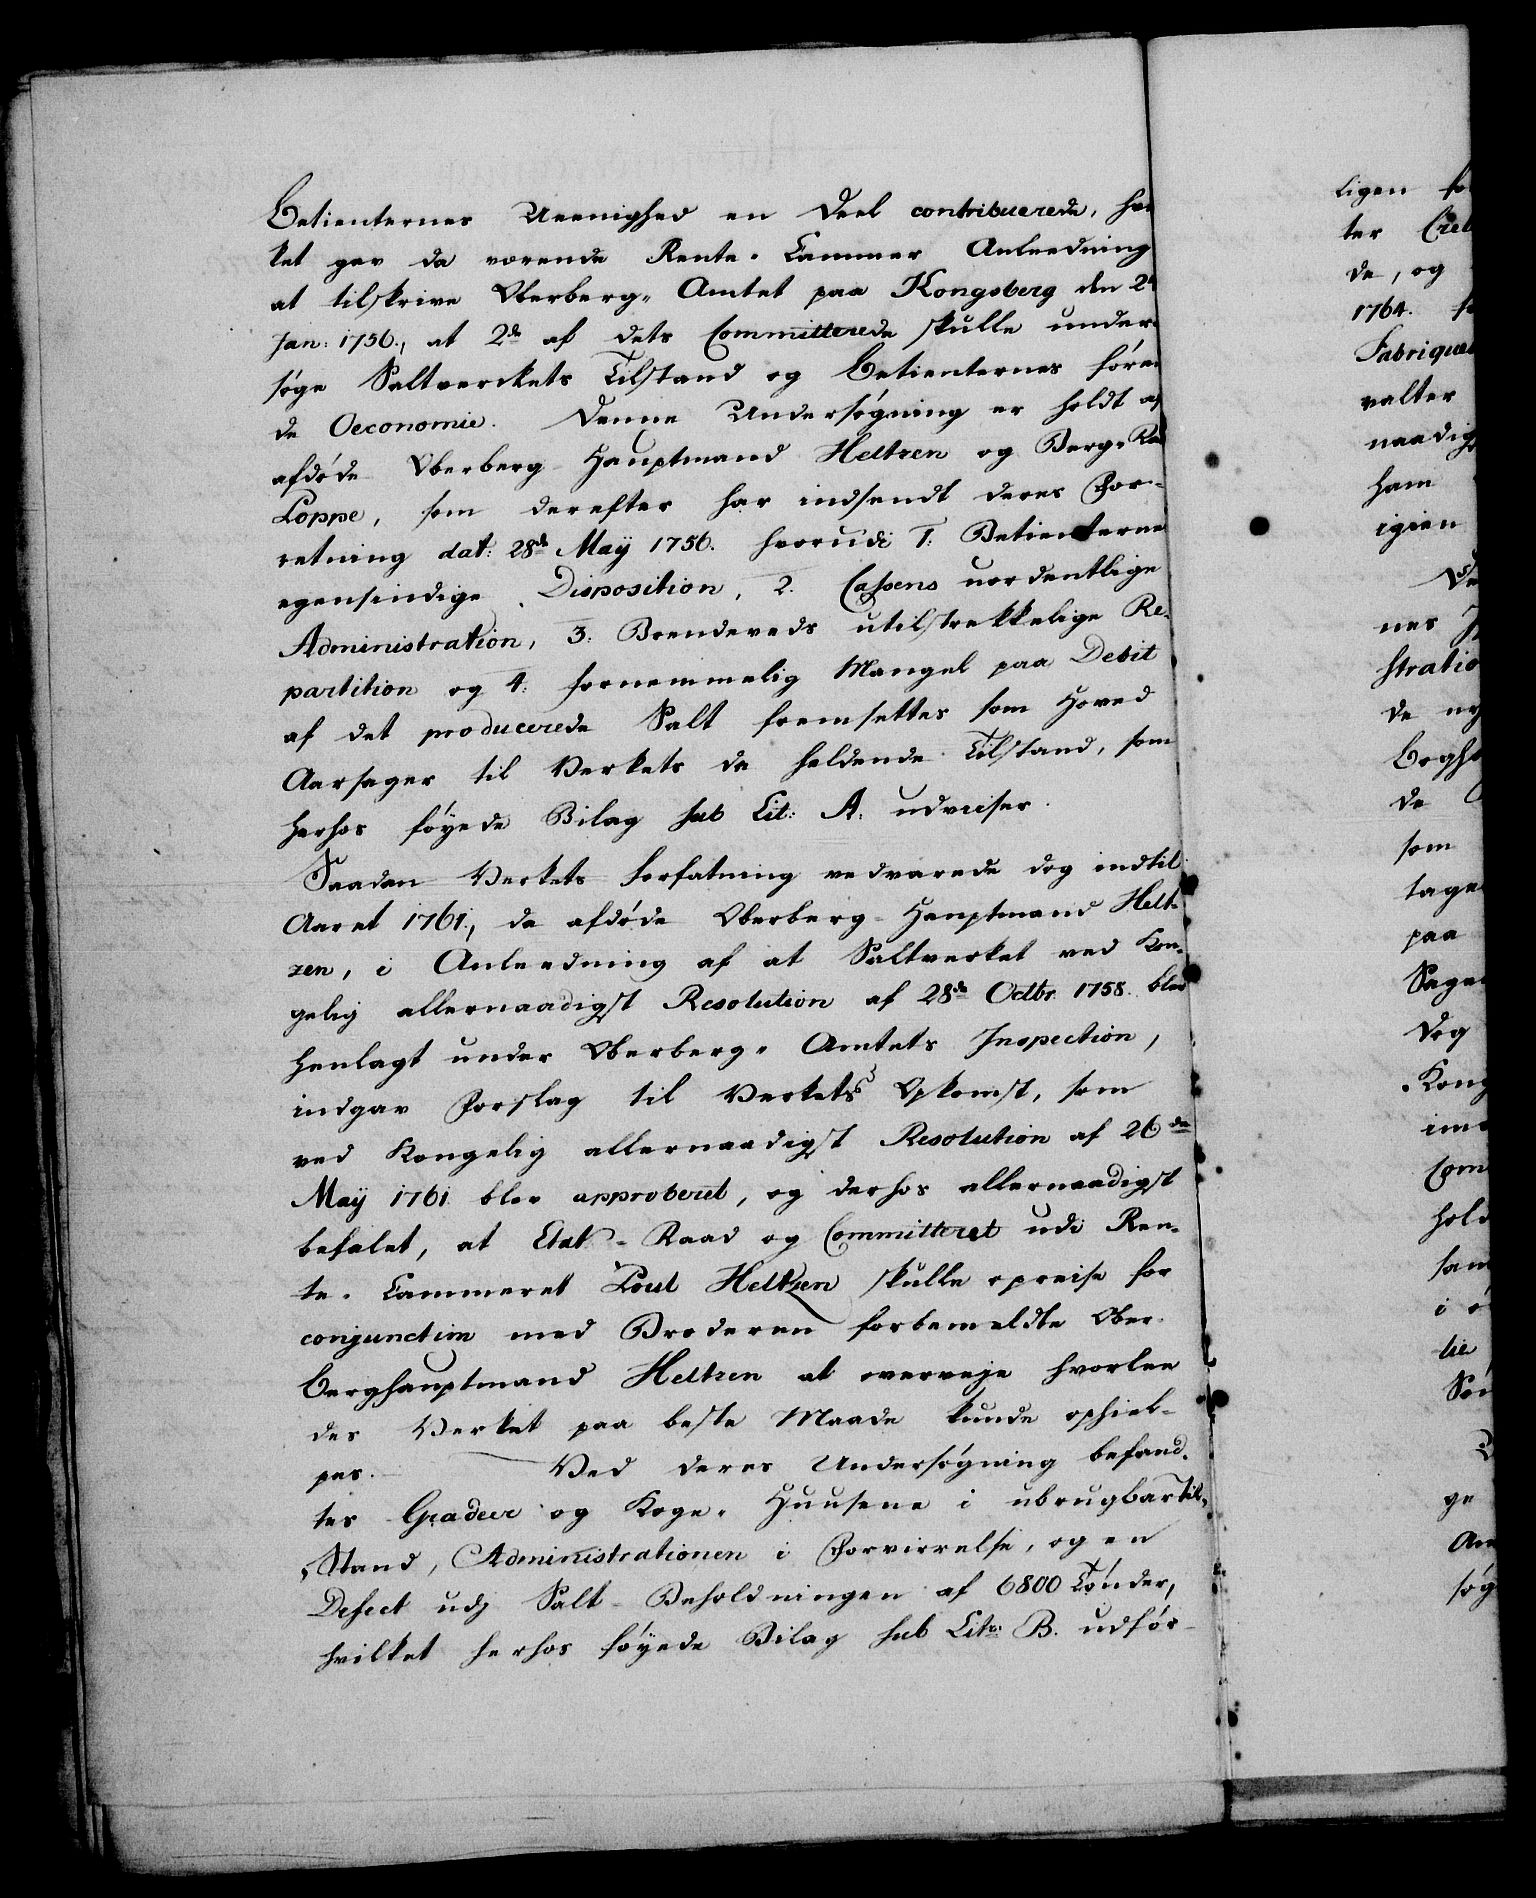 Betienternes Ueenighed en Deel contribuerede, hvi
ket gav da værende Rente-Cammer Anleedning
at tilskrive Oberberg-Amtet paa Kongsberg den 24
Jan: 1756., at 2de af dets Committerede skulle under
søge Saltverckets Tilstand og Betienternes føren
de Oeconomie. Denne Undersøgning er holdt af
afdøde Oberberg-Hauptmand Heltzen og Berg-Raad
Loppe, som derefter har indsendt deres For-
retning dat: 28de Maÿ 1756. hvorudi 1: Betienterne
egensindige Disposition, 2. Cassens uordentlige
Administration, 3: Brendeveds utilstrekkelige Re-
partition og 4: fornemmelig Mangel paa Debit
af det producerede Salt fremsettes som Hoved
Aarsager til Verkets da heldende Tilstand, som
herhos føyede Bilag sub Lit: A. udviser.
Saadan Verkets Forfatning vedvarede dog indtil
Aaret 1761., da afdøde Oberberg-Hauptmand Helt-
zen, i Anleedning af at Saltverket ved Kon-
gelig allernaadigst Resolution af 28de Octbr. 1758. blev
henlagt under Oberberg-Amtets Inspection,
indgav Forslag til Verkets Opkomst, som
ved Kongelig allernaadigst Resolution af 26de
Maÿ 1761 blev approberet, og derhos allernaadigst
befalet, at Etats-Raad og Committeret udi Ren-
te-Cammeret Poul Heltzen skulle opreise for
conjunctim med Broderen forbemeldte Ober-
berghauptmand Heltzen at overveje hvorlee
des Verket paa beste Maade kunde ophiel-
pes. Ved deres Undersøgning befand-
tes Gradeer og Koge-Huusene i ubrugbar Til-
Stand, Administrationen i Forvirrelse, og en
Defect udj Salt-Beholdningen af 6800 Tønder,
hvilket herhos føyede Bilag sub Litr: B. udfør-
ligen
ter
de, og
1764.
Fabriquer
valter
naadig
ham
igien
nes
stratio
de
de
som
tage
paa
Sage
dog
Kong
Com
hold
sam
i
ge
søg